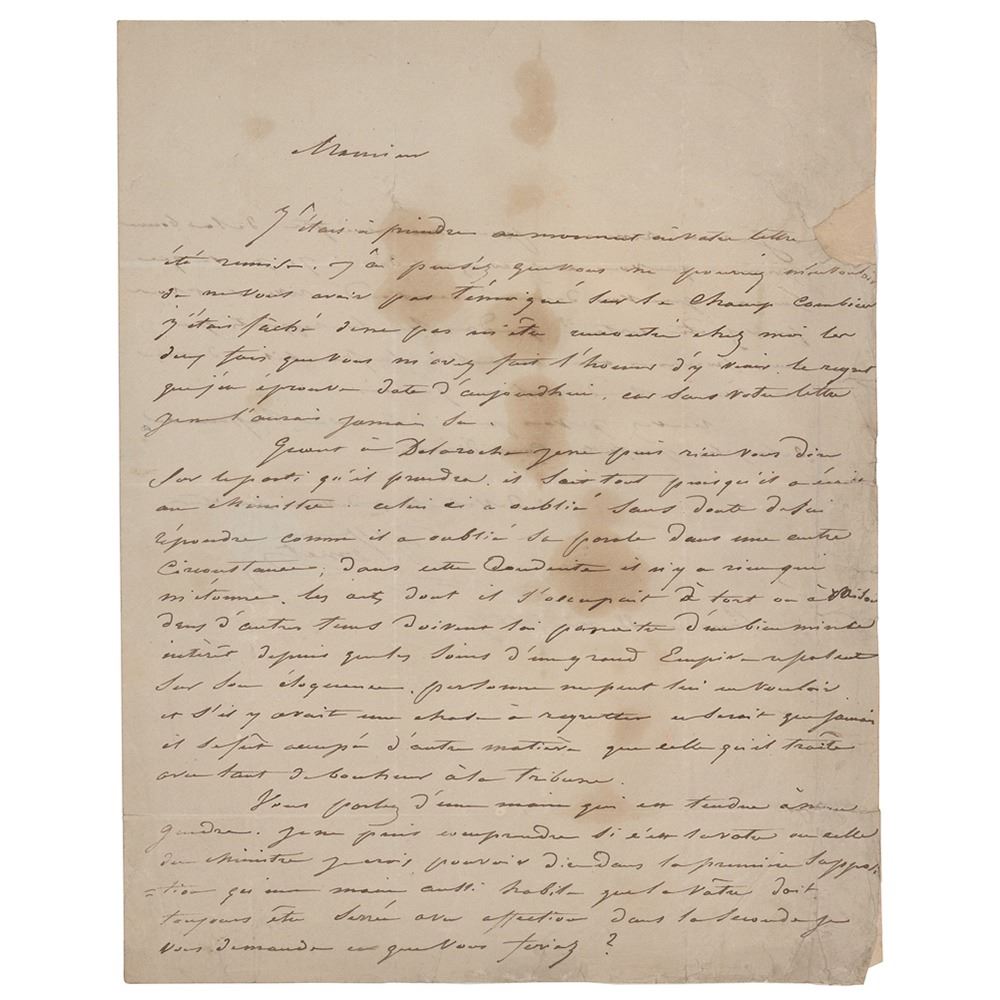 Monsieur
J'étais à peindre au moment où votre lettre
été remise. J'ai pensez que vous ne pourriez m'en vouloir
de ne vous avoir pas témoigné sur le champ combien
j'étais faché de ne pas m'être rencontré chez moi les
deux fois que vous m'avez fait l'honneur d'y venir. le regret
que j'en éprouve date d'aujourdhui, car sans votre lettre
je ne l'aurais jamais su.
Quant à Delaroche je ne puis rien vous dire
sur le parti qu'il prendra. il sait tout puisqu'il a écrit
au Ministre. celui ci a oublié sans doute de lui
répondre comme il a oublié sa parole dans une autre
circonstance, dans cette conduite il n'y a rien qui
m'étonne. les arts dont il s'occupait à tort ou à
dans d'autres tems doivent lui paraitre d'un bien mince
intèrêt depuis que les soins d'un grand Empire reposent
sur son éloquence. personne ne peut lui en vouloir
et s'il y avait une chose à regretter ce serait que jamais
il se fût occupé d'autre matière que celle qu'il traite
avec tant de bonheur à la tribune.
Vous parlez d'une main qui est tendue à mon
gendre. je ne puis comprendre si c'est la votre ou celle
du Ministre je crois pouvoir dire dans la première supposi
=tion qu'une main aussi habile que la vôtre doit
toujours être serrée avec affection dans la seconde je
vous demande ce que vous feriez ?